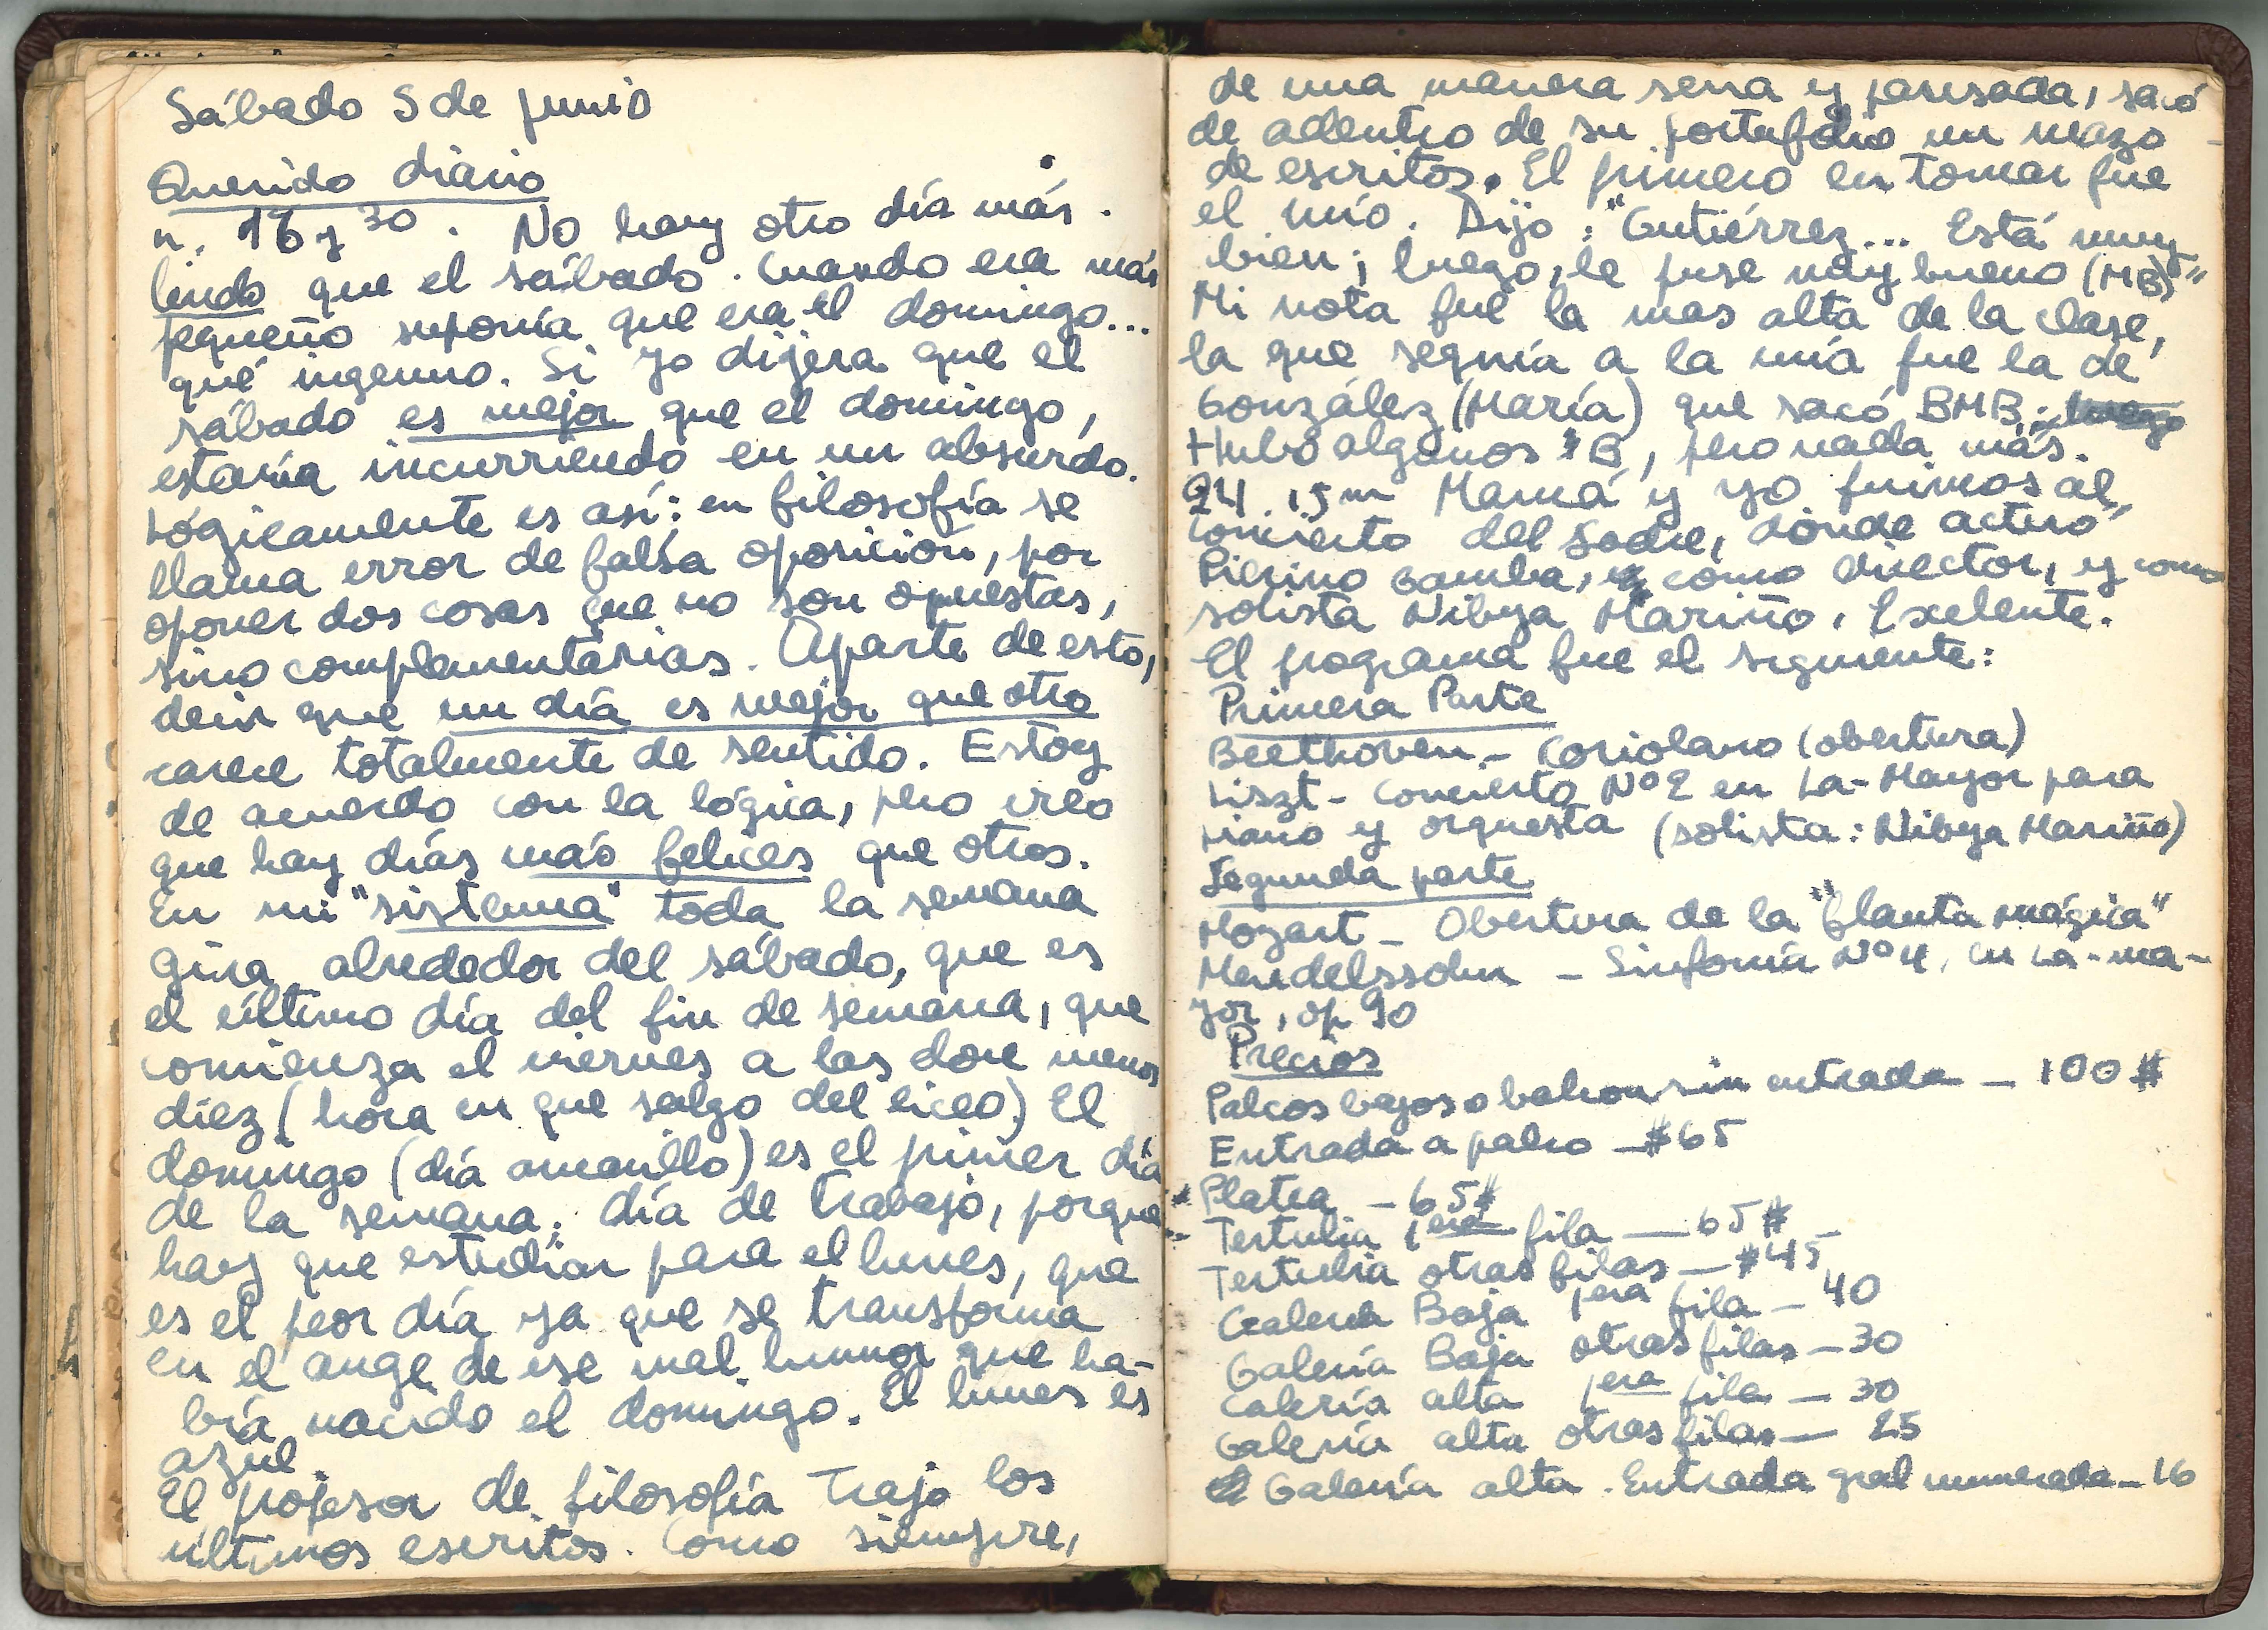 Sábado 5 de junio
Querido diario
n. 16 y 30. No hay otro día más
lindo que el sábado. Cuando era más
pequeño suponía que era el domingo...
qué ingenuo. Si yo dijera que el
sábado es mejor que el domingo,
estaría incurriendo en un absurdo.
Lógicamente es así: en filosofía se
llama error de falsa oposición, por
oponer dos cosas que no son opuestas,
sino complementarias. Aparte de esto,
decir que un día es mejor que otro
carece totalmente de sentido. Estoy
de acuerdo con la lógica, pero creo
que hay días más felices que otros.
En mi "sistema" toda la semana
gira alrededor del sábado, que es
el último día del fin de semana, que
comienza el viernes a las doce menos
diez (hora en que salgo del liceo). El
domingo (día amarillo) es el primer día
de la semana; día de trabajo, porque
hay que estudiar para el lunes, que
es el peor día ya que se transforma
en el auge de ese mal humor que ha-
bía nacido el domingo. El lunes es
azul.
El profesor de filosofía trajo los
últimos escritos. Como siempre,
de una manera seria y pausada, sacó
de adentro de su portafolio un mazo
de escritos. El primero en tomar fue
el mío. Dijo: "Gutiérrez... Está muy
bien; luego, le puse muy bueno (MB)"
Mi nota fue la mas alta de la clase,
la que seguía a la mía fue la de
González (María) que sacó BMB. luego
Hubo algunos B, pero nada más.
24. 15m Mamá y yo fuimos al
concierto del Sodre, dónde actuó
Pierino Gamba, como director, y como
solista Nibya Mariño. Exelente.
El programa fue el siguiente:
Primera Parte
Beethoven - Coriolano (obertura)
Liszt - Concierto Nº 2 en La-Mayor para
piano y orquesta (solista: Nibya Mariño)
Segunda parte
Mozart - Obertura de la "flauta mágica"
Mendelssohn - Sinfonía Nº 4, en La-ma-
yor, op 90
Precios
Palcos bajos o balcon sin entrada - 100 $
Entrada a palco - $65
Platea - 65$
Tertulia 1era fila - 65 $
Tertulia otras filas - $45
Galería Baja 1era fila - 40
Galería Baja otras filas - 30
Galería alta 1era fila - 30
Galería alta otras filas - 25
Galería alta. Entrada gral numerada - 16